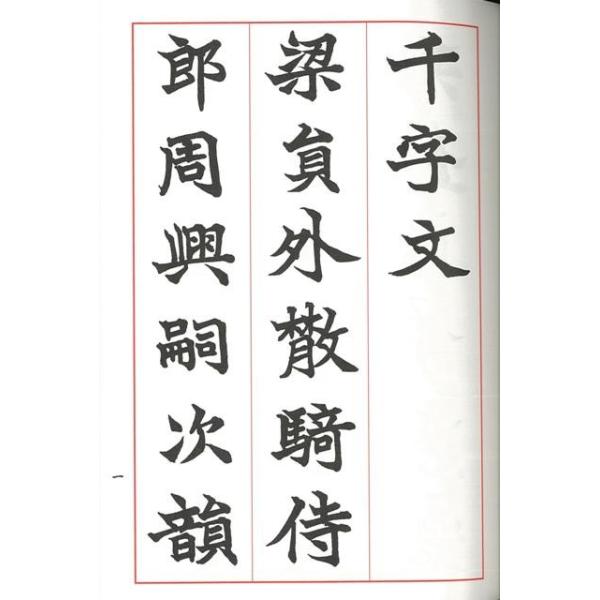 千字文
梁貟外散騎侍
郎周興嗣次韻
一